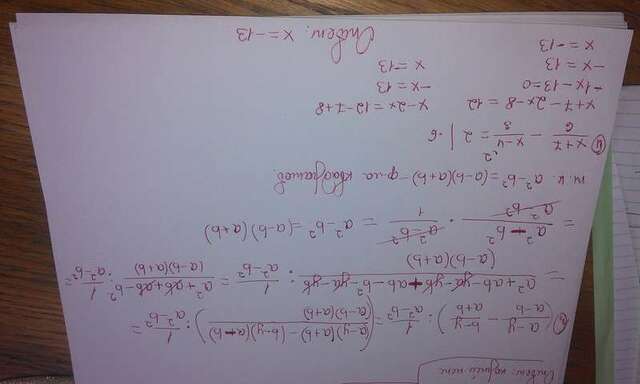 Ответ: корней нет.
((a-y)/(a-b) - (b-y)/(a+b)) : 1/(a²-b²) = ((a-y)(a+b) - (b-y)(a-b))/((a-b)(a+b)) : 1/(a²-b²) =
= (a²+ab-ya-yb-ab+b²-ya-yb)/((a-b)(a+b)) : 1/(a²-b²) = (a²+ab+ab-b²)/((a-b)(a+b)) : 1/(a²-b²) =
= (a²-b²)/(a²-b²) · (a²-b²)/1 = a²-b² = (a-b)(a+b)
т.к. a²-b²=(a-b)(a+b) - ф-ла квадратов.
④ (x+7)/6 - (x-4)/3 = 2 | ·6
x+7-2x-8=12 x-2x=12-7+8
-1x-13=0 -x=13
-x=13 x=-13
x=-13
Ответ: x=-13